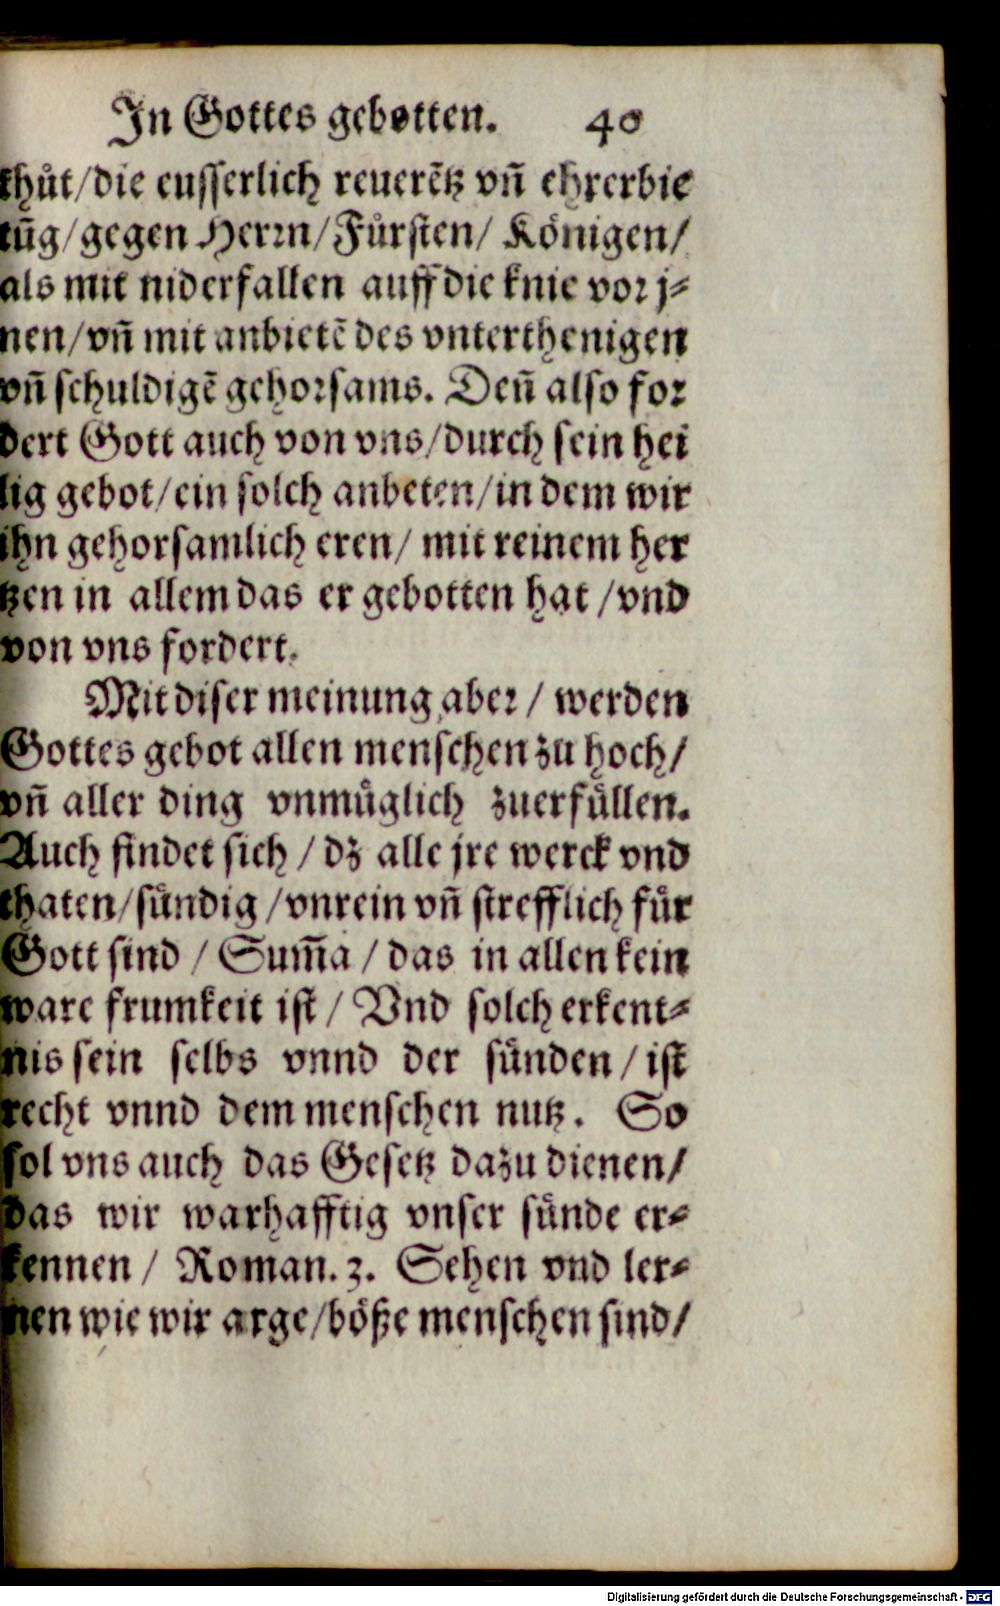 In Gottes gebotten. 40
thůt/die eusserlich reuerẽtz vñ ehrerbie
tũg/gegen Herrn/Fürsten/ Königen/
als mit niderfallen auff die knie vor j⸗
nen/vñ mit anbietẽ des vnterthenigen
vñ schuldigẽ gehorsams. Deñ also for
dert Gott auch von vns/durch sein hei
lig gebot/ein solch anbeten/in dem wir
ihn gehorsamlich eren/ mit reinem her
tzen in allem das er gebotten hat /vnd
von vns fordert.
Mit diser meinung aber / werden
Gottes gebot allen menschen zu hoch/
vñ aller ding vnmüglich zuerfüllen.
Auch findet sich / dz alle jre werck vnd
thaten/sündig /vnrein vñ strefflich für
Gott sind / Sum̃a / das in allen kein
ware frumkeit ist / Vnd solch erkent⸗
nis sein selbs vnnd der sünden / ist
recht vnnd dem menschen nutz. So
sol vns auch das Gesetz dazu dienen/
das wir warhafftig vnser sünde er⸗
kennen / Roman. 3. Sehen vnd ler⸗
nen wie wir arge/böße menschen sind/
Digitalisierung gefördert durch die Deutsche Forschungsgemeinschaft - DFG